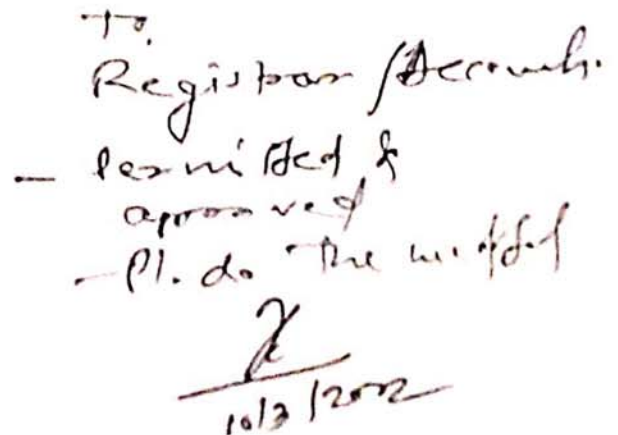 To,
Registrar / Accounts.
- Permitted &
approved
- Pl. do the needful